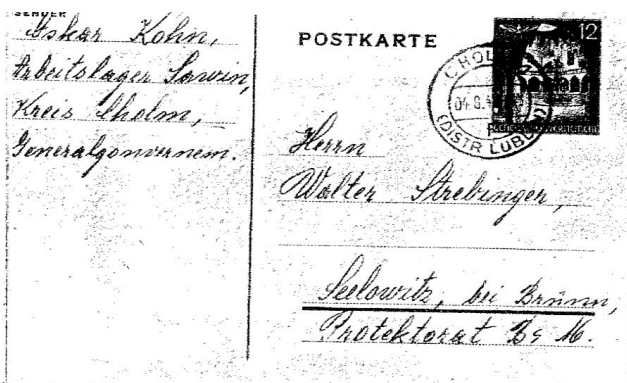 SENDER
Oskar Kohn,
Arbeitslager Sawin,
Kreis Cholm,
Generalgouvernem.
POSTKARTE
12
CHOL
04.9.4
(DISTR LUBLIN)
GENERALGOUVERNEMENT
Herrn
Walter Strebinger,
Seelowitz, bei Brünn,
Protektorat B. M.